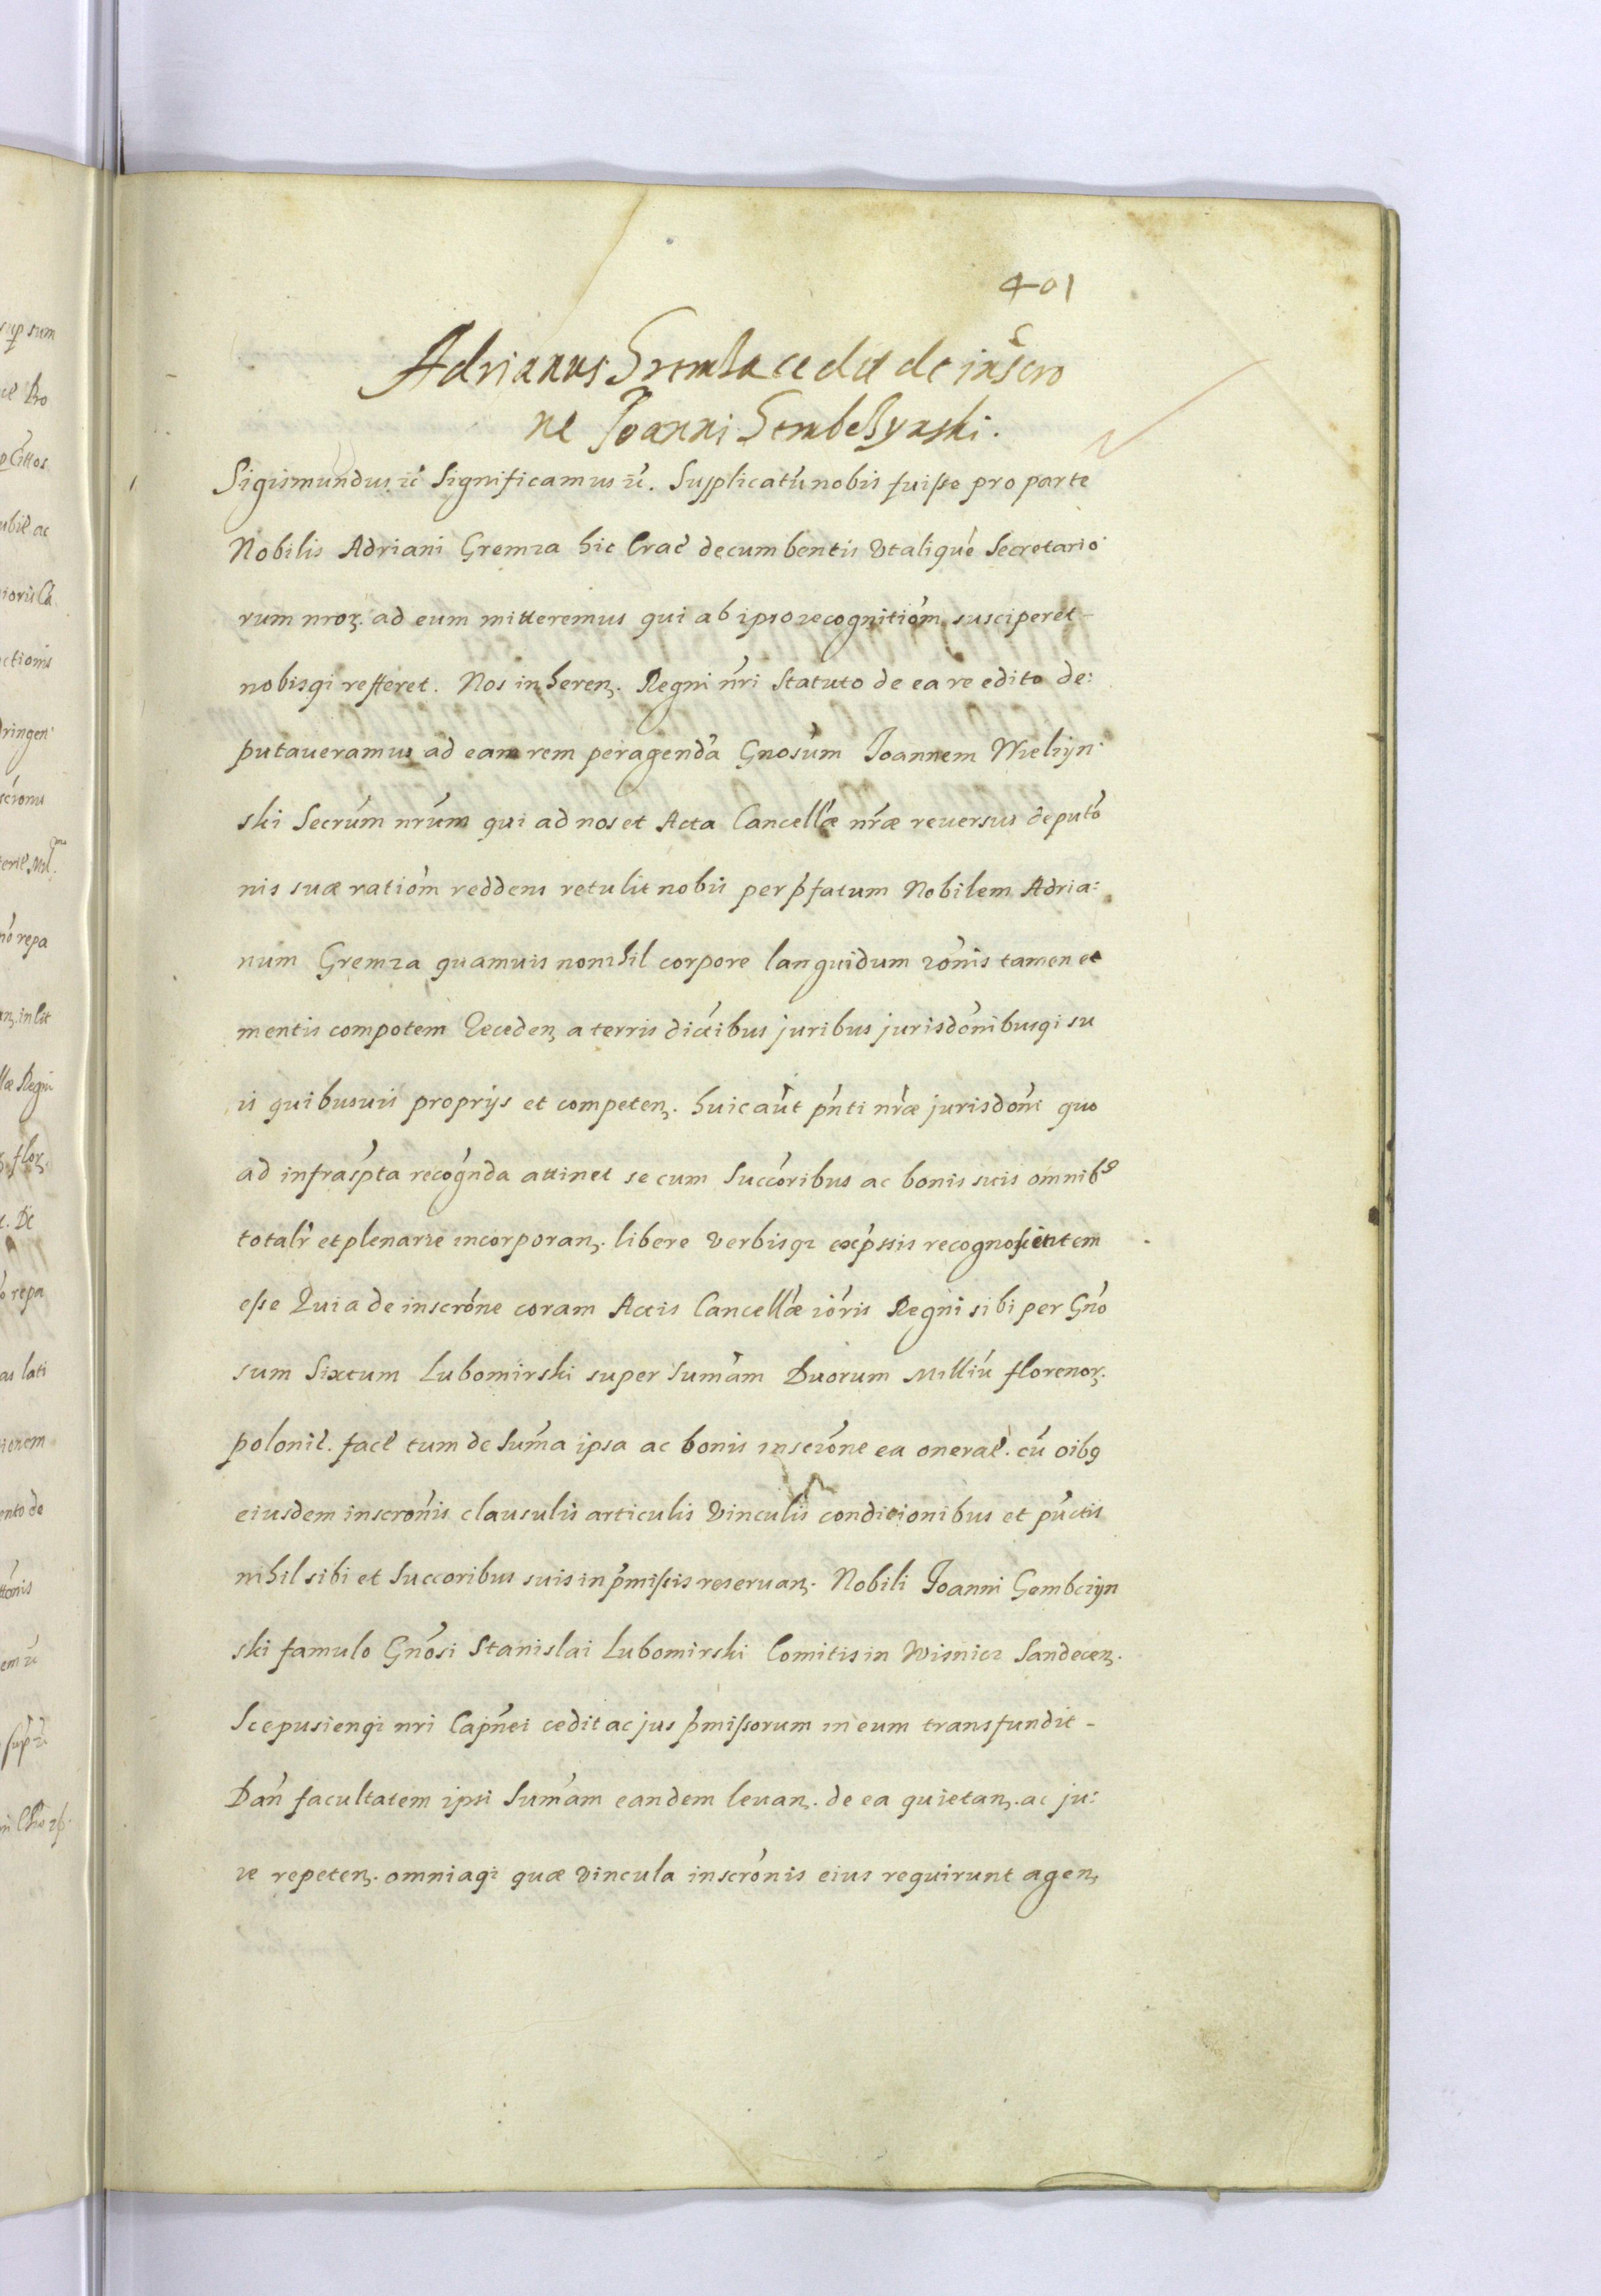 401
Adrianus Gremza cedit de inscro
ne Joanni Gembczynski.
Sigismundus rc̃ Significamus rc̃. Supplicatũ nobis fuisse pro parte
Nobilis Adriani Gremza hic Crac̃ decumbentis Vt aliqué Secretario
rum nroꝝ ad eum mitteremus qui ab ipso recognitióm susciperet
nobisqɜ refferet. Nos inherenꝫ. Regni nr̃i Statuto de ea re edito de:
putaueramus ad eam rem peragendã Gnosũm Joannem Wieliyn
ski Secrũm nrũm qui ad nos et Acta Cancellæ nr̃æ reuersus deputõ
nis suæ ratióm reddens retulit nobis per p̃fatum Nobilem Adria:
num Gremza quamuis nonihil corpore languidum rõnis tamen et
mentis compotem Recedenꝫ a terris dictibus juribus jurisdõnibusqɜ su
is quibusuis proprijs et competenꝫ. huic aũt pñti nr̃æ jurisdõni quo
ad infrasp̃ta recog̃nda attinet se cum Succõribus ac bonis suis omnib9
totalr̃ et plenarie incorporanꝫ. libere Verbisqɜ exp̃ssis recognoscentem
esse Quia de inscrõne coram Actis Cancellæ iõris Regni sibi per Gño
sum Sixtum Lubomirski super Sumãm Duorum Milliũ florenoꝝ.
polonic̃. fact̃ tum de Sum̃a ipsa ac bonis inscrõne ea onerat̃. cũ oib9
eiusdem inscrõnis clausulis articulis Vinculis conditionibus et pũctis
nihil sibi et Succoribus suis in p̃missis reseruanꝫ. Nobili Joanni Gembczyn
ski famulo Gñosi Stanislai Lubomirski Comitis in Wisnicz Sandecenꝫ.
Scepusienqɜ nri Capñei cedit ac jus p̃missorum in eum transfundit
Dañ facultatem ipsi Sumãm eandem leuanꝫ. de ea quietanꝫ. ac ju:
re repetenꝫ. omniaqɜ quæ Vincula inscrõnis eius requirunt agenꝫ